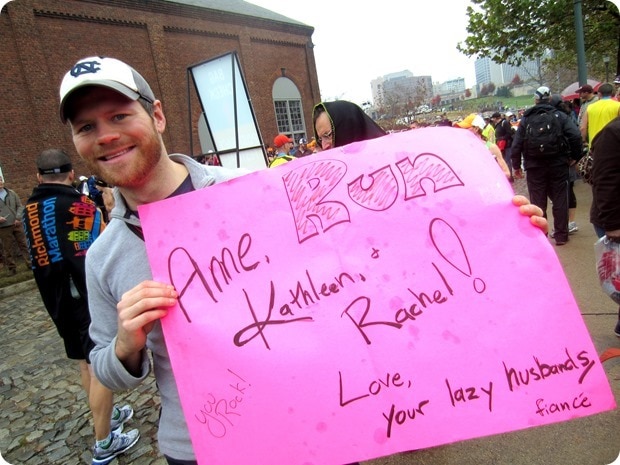 NC
Richmond
Marathon
Run
Anne,
Kathleen, &
Rachel!
you
Rock!
Love,
your lazy husbands,
fiancé